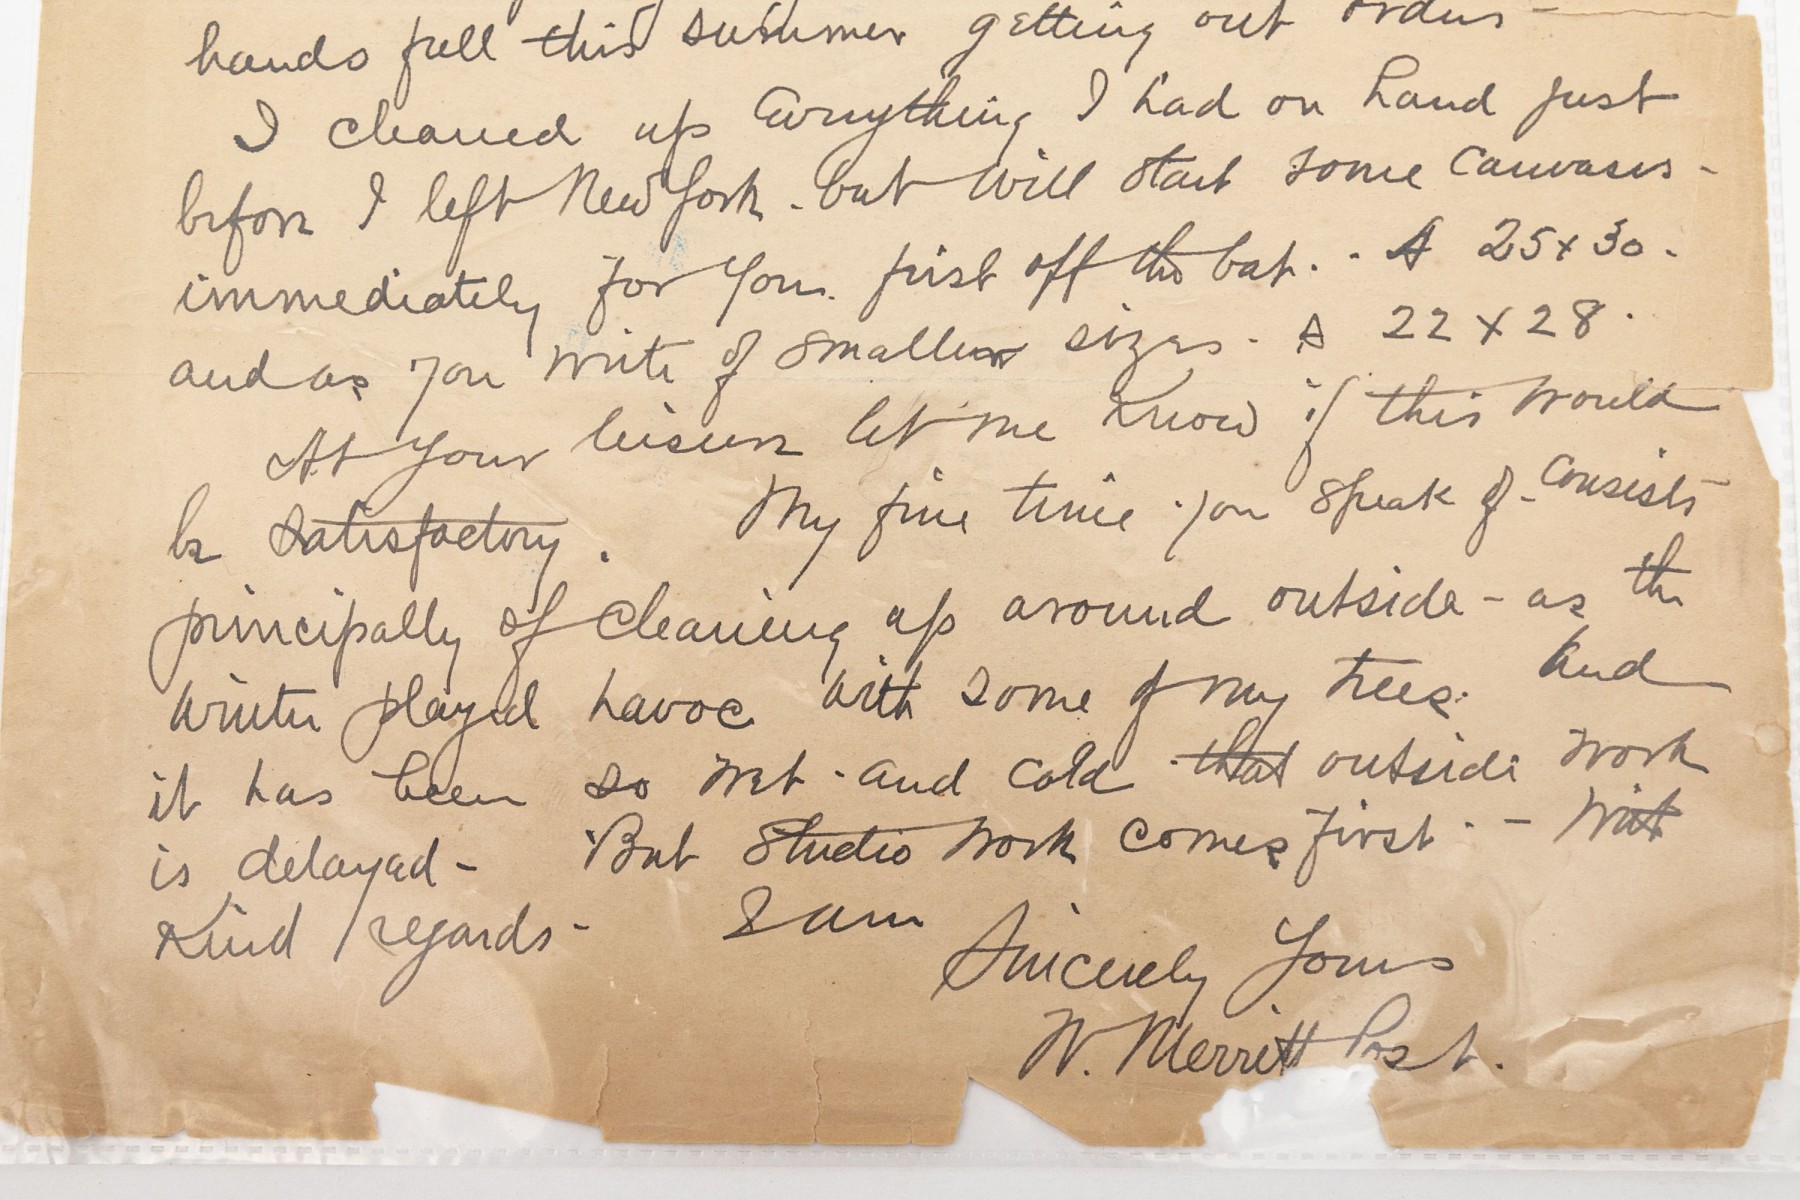 hands full this summer getting out orders -
I cleaned up Everything I had on hand just
before I left New York - but will start some canvases -
immediately for you. first off the bat. - A 25 x 30.
and as you write of smaller sizes - A 22 x 28.
At your leisure let me know if this would
be satisfactory. My fine time you speak of - consists
principally of cleaning up around outside - as the
winter played havoc with some of my trees. And
it has been so wet - and cold that outside work
is delayed - But studio work comes first - - With
kind regards - I am
Sincerely Yours
W. Merritt Post.